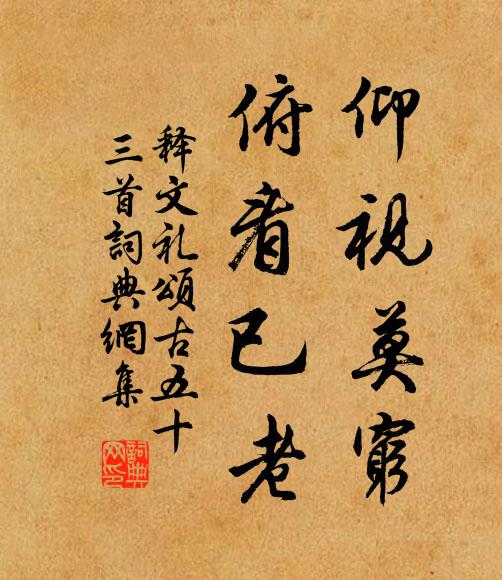 仰視莫窮
俯看已老
释文礼頌古五十
三首詞典網集
詞典